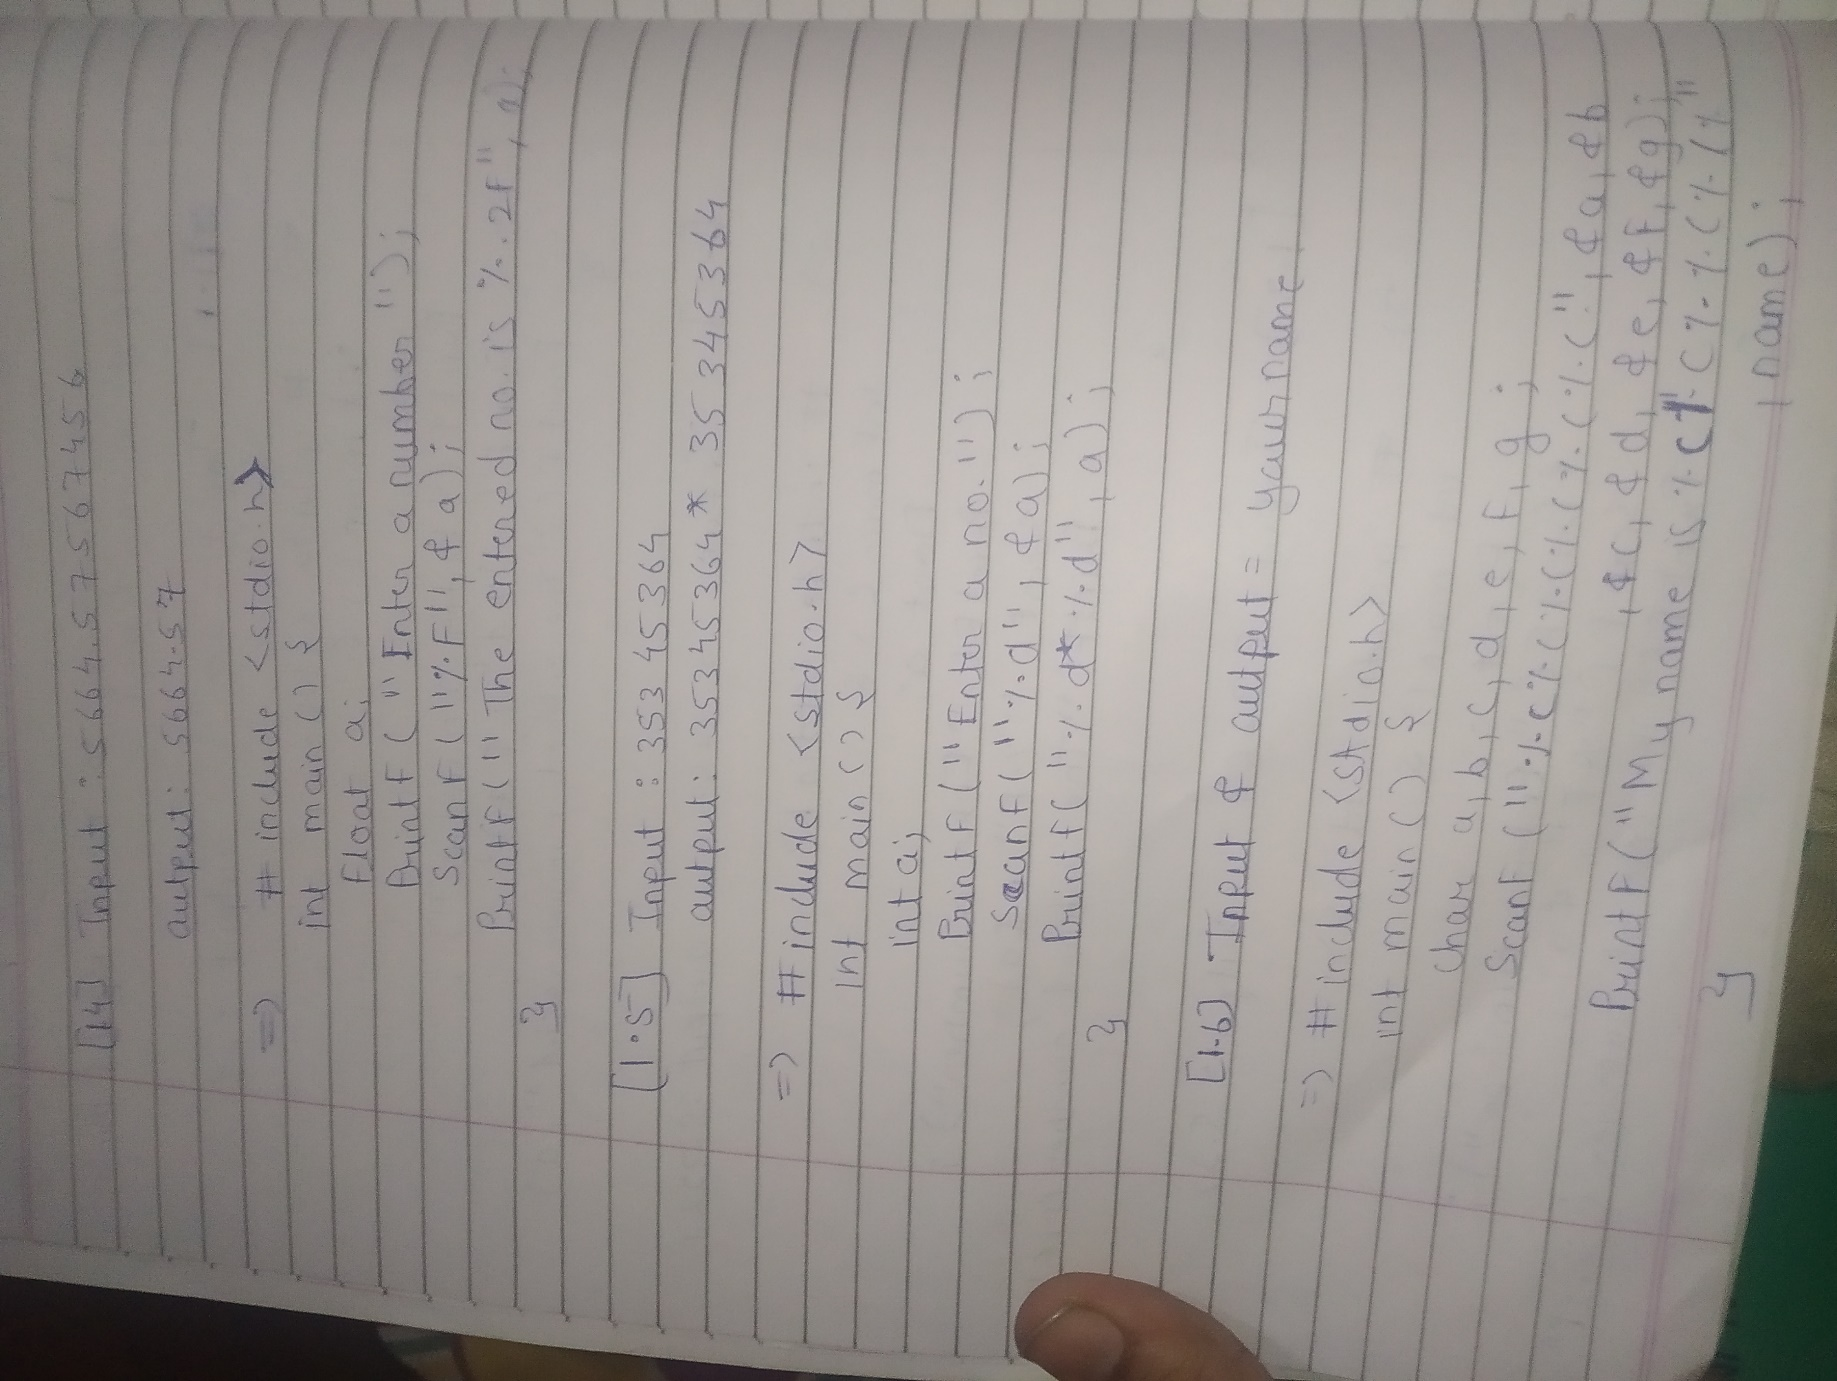 [14] Input : 5664.57567456
output : 5664.57
=> # include <stdio.h>
int main () {
float a;
Printf ( " Enter a number ");
Scanf ( "%f", & a);
Printf (" The entered no. is %.2f", a);
}
[1.5] Input : 35345364
output : 35345364 * 35345364
=> # include <stdio.h>
int main () {
int a;
Printf ("Enter a no.");
Scanf ( "%d", & a);
Printf ( "%d*%d", a);
}
[1.6] Input & output = your name
=> # include <stdio.h>
int main () {
char a, b, c, d, e, f, g;
Scanf ("%c%c%c%c%c%c%c", &a, &b
, &c, &d, &e, &f, &g);
Printf ("My name is %c%c%c%c%c%c"
, name);
}